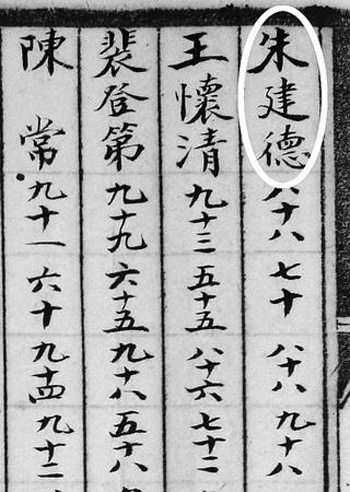 朱建德 八十八 七十 八十八 九十八
王懷清 九十三 五十五 八十六 七十二
裴登第 九十九 六十五 九十八 五十八
陳常 九十一 六十 九十四 九十二